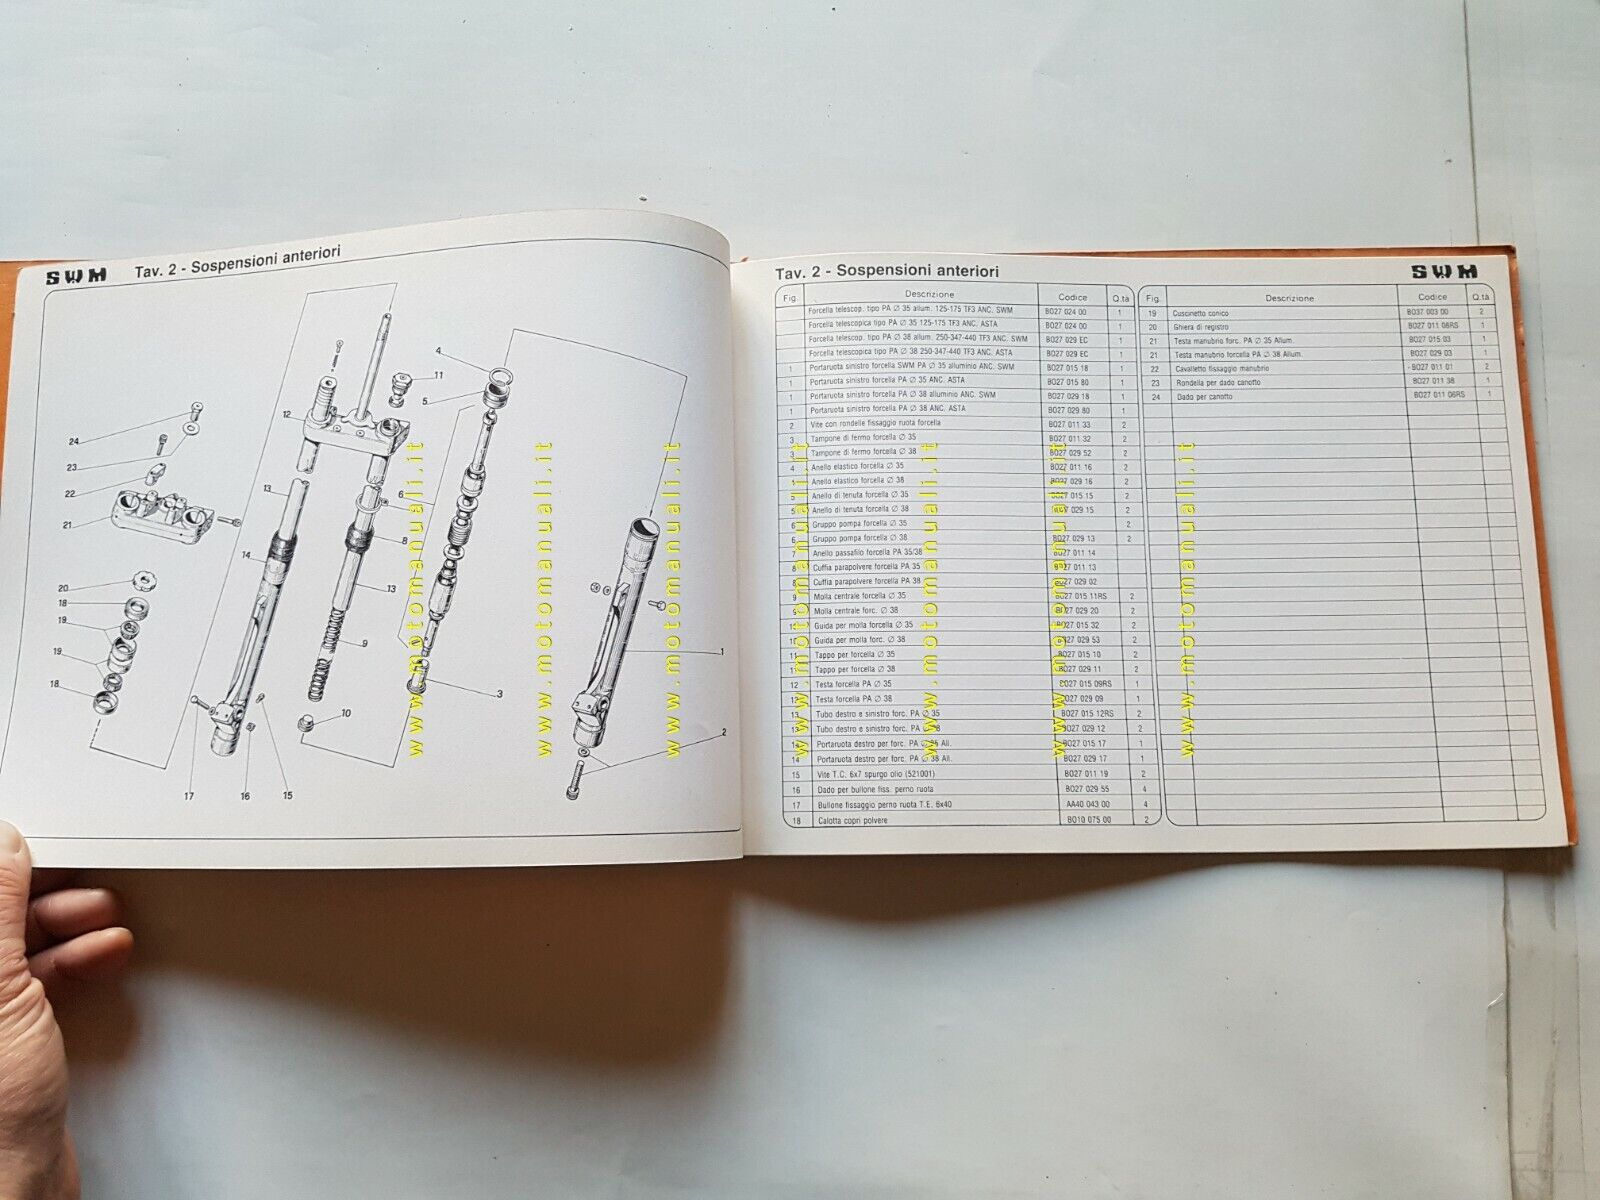 SWM Tav. 2 - Sospensioni anteriori
4
11
5
12
24
23
22
21
13
6
8
14
20
18
19
13
19
9
18
1
3
10
2
17
16
15
www.motomanuali.it
www.motomanuali.it
www.motomanuali.it
Tav. 2 - Sospensioni anteriori SWM
Fig. Descrizione Codice Q.tà
Forcella telescop. tipo PA ∅ 35 allum. 125-175 TF3 ANC. SWM BO27 024 00 1
Forcella telescopica tipo PA ∅ 35 125-175 TF3 ANC. ASTA BO27 024 00 1
Forcella telescop. tipo PA ∅ 38 allum. 250-347-440 TF3 ANC. SWM BO27 029 EC 1
Forcella telescopica tipo PA ∅ 38 250-347-440 TF3 ANC. ASTA BO27 029 EC 1
1 Portaruota sinistro forcella SWM PA ∅ 35 alluminio ANC. SWM BO27 015 18 1
1 Portaruota sinistro forcella PA ∅ 35 ANC. ASTA BO27 015 80 1
1 Portaruota sinistro forcella PA ∅ 38 alluminio ANC. SWM BO27 029 18 1
1 Portaruota sinistro forcella PA ∅ 38 ANC. ASTA BO27 029 80 1
2 Vite con rondelle fissaggio ruota forcella BO27 011 33 2
3 Tampone di fermo forcella ∅ 35 BO27 011 32 2
3 Tampone di fermo forcella ∅ 38 BO27 029 52 2
4 Anello elastico forcella ∅ 35 BO27 011 16 2
Anello elastico forcella ∅ 38 029 16 2
5 Anello di tenuta forcella ∅ 35 015 15 2
5 Anello di tenuta forcella ∅ 38 029 15 2
6 Gruppo pompa forcella ∅ 35 2
6 Gruppo pompa forcella ∅ 38 029 13 2
7 Anello passafilo forcella PA 35/38 011 14
8 Cuffia parapolvere forcella PA 35 011 13
8 Cuffia parapolvere forcella PA 38 029 02
9 Molla centrale forcella ∅ 35 015 11RS 2
9 Molla centrale forc. ∅ 38 029 20 2
10 Guida per molla forcella ∅ 35 BO27 015 32 2
10 Guida per molla forc. ∅ 38 029 53 2
11 Tappo per forcella ∅ 35 BO27 015 10 2
11 Tappo per forcella ∅ 38 029 11 2
12 Testa forcella PA ∅ 35 015 09RS 1
12 Testa forcella PA ∅ 38 029 09 1
13 Tubo destro e sinistro forc. PA ∅ 35 BO27 015 12RS 2
13 Tubo destro e sinistro forc. PA 029 12 2
14 Portaruota destro per forc. PA All. BO27 015 17 1
14 Portaruota destro per forc. PA ∅ 38 All. BO27 029 17 1
15 Vite T.C. 6x7 spurgo olio (521001) BO27 011 19 2
16 Dado per bullone fiss. perno ruota BO27 029 55 4
17 Bullone fissaggio perno ruota T.E. 6x40 AA40 043 00 4
18 Calotta copri polvere BO10 075 00 2
Fig. Descrizione Codice Q.tà
19 Cuscinetto conico BO37 003 00 2
20 Ghiera di registro BO27 011 08RS 1
21 Testa manubrio forc. PA ∅ 35 Allum. BO27 015 03 1
21 Testa manubrio forcella PA ∅ 38 Allum. BO27 029 03 1
22 Cavalletto fissaggio manubrio BO27 011 01 2
23 Rondella per dado canotto BO27 011 38 1
24 Dado per canotto BO27 011 06RS 1
www.motomanuali.it
www.motomanuali.it
www.motomanuali.it
www.motomanuali.it